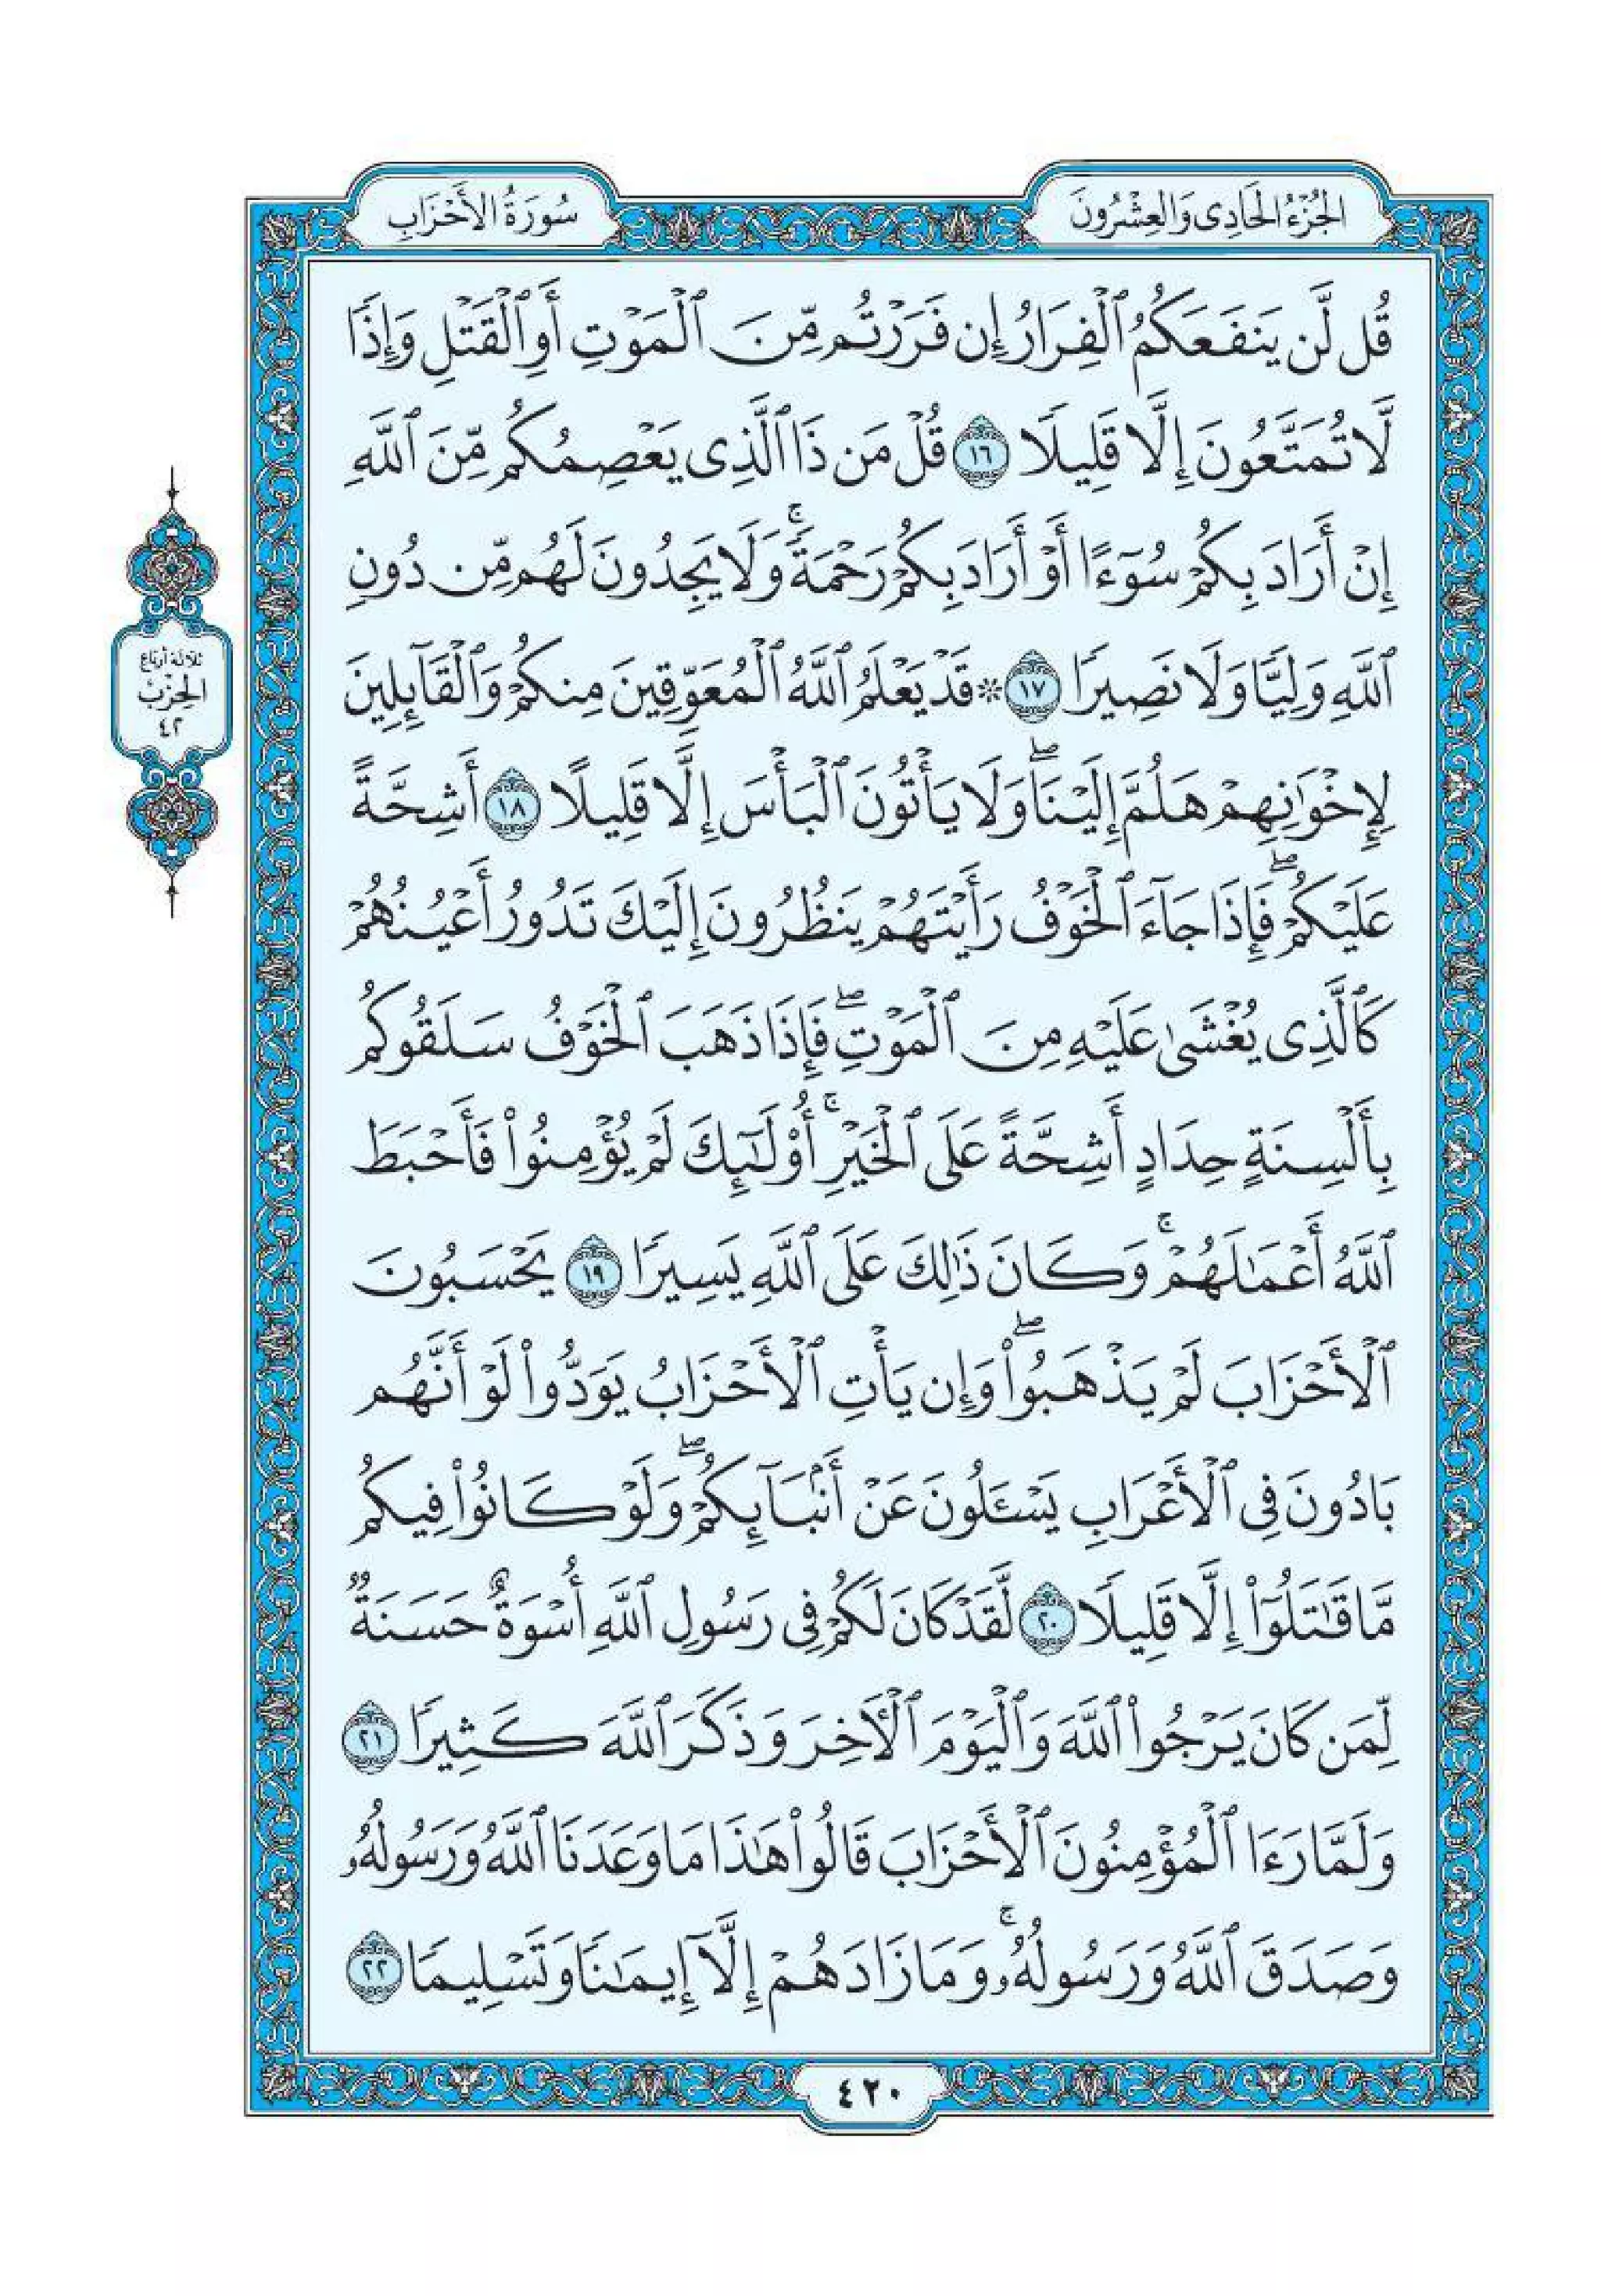 الجُزْءُ الحَادِى وَالعِشْرُونَ
سُورَةُ الأَحْزَابِ
قُل لَّن يَنفَعَكُمُ ٱلْفِرَارُ إِن فَرَرْتُم مِّنَ ٱلْمَوْتِ أَوِ ٱلْقَتْلِ وَإِذًا
لَّا تُمَتَّعُونَ إِلَّا قَلِيلًا ١٦ قُلْ مَن ذَا ٱلَّذِى يَعْصِمُكُم مِّنَ ٱللَّهِ
إِنْ أَرَادَ بِكُمْ سُوٓءًا أَوْ أَرَادَ بِكُمْ رَحْمَةً ۚ وَلَا يَجِدُونَ لَهُم مِّن دُونِ
ٱللَّهِ وَلِيًّا وَلَا نَصِيرًا ١٧ ۞ قَدْ يَعْلَمُ ٱللَّهُ ٱلْمُعَوِّقِينَ مِنكُمْ وَٱلْقَآئِلِينَ
لِإِخْوَٰنِهِمْ هَلُمَّ إِلَيْنَا ۖ وَلَا يَأْتُونَ ٱلْبَأْسَ إِلَّا قَلِيلًا ١٨ أَشِحَّةً
عَلَيْكُمْ ۖ فَإِذَا جَآءَ ٱلْخَوْفُ رَأَيْتَهُمْ يَنظُرُونَ إِلَيْكَ تَدُورُ أَعْيُنُهُمْ
كَٱلَّذِى يُغْشَىٰ عَلَيْهِ مِنَ ٱلْمَوْتِ ۖ فَإِذَا ذَهَبَ ٱلْخَوْفُ سَلَقُوكُم
بِأَلْسِنَةٍ حِدَادٍ أَشِحَّةً عَلَى ٱلْخَيْرِ ۚ أُو۟لَٰٓئِكَ لَمْ يُؤْمِنُوا۟ فَأَحْبَطَ
ٱللَّهُ أَعْمَٰلَهُمْ ۚ وَكَانَ ذَٰلِكَ عَلَى ٱللَّهِ يَسِيرًا ١٩ يَحْسَبُونَ
ٱلْأَحْزَابَ لَمْ يَذْهَبُوا۟ ۖ وَإِن يَأْتِ ٱلْأَحْزَابُ يَوَدُّوا۟ لَوْ أَنَّهُم
بَادُونَ فِى ٱلْأَعْرَابِ يَسْـَٔلُونَ عَنْ أَنۢبَآئِكُمْ ۖ وَلَوْ كَانُوا۟ فِيكُم
مَّا قَٰتَلُوٓا۟ إِلَّا قَلِيلًا ٢٠ لَّقَدْ كَانَ لَكُمْ فِى رَسُولِ ٱللَّهِ أُسْوَةٌ حَسَنَةٌ
لِّمَن كَانَ يَرْجُوا۟ ٱللَّهَ وَٱلْيَوْمَ ٱلْـَٔاخِرَ وَذَكَرَ ٱللَّهَ كَثِيرًا ٢١
وَلَمَّا رَءَا ٱلْمُؤْمِنُونَ ٱلْأَحْزَابَ قَالُوا۟ هَٰذَا مَا وَعَدَنَا ٱللَّهُ وَرَسُولُهُۥ
وَصَدَقَ ٱللَّهُ وَرَسُولُهُۥ ۚ وَمَا زَادَهُمْ إِلَّآ إِيمَٰنًا وَتَسْلِيمًا ٢٢
ثلاثة أرباع
الحِزْبُ
٤٢
٤٢٠